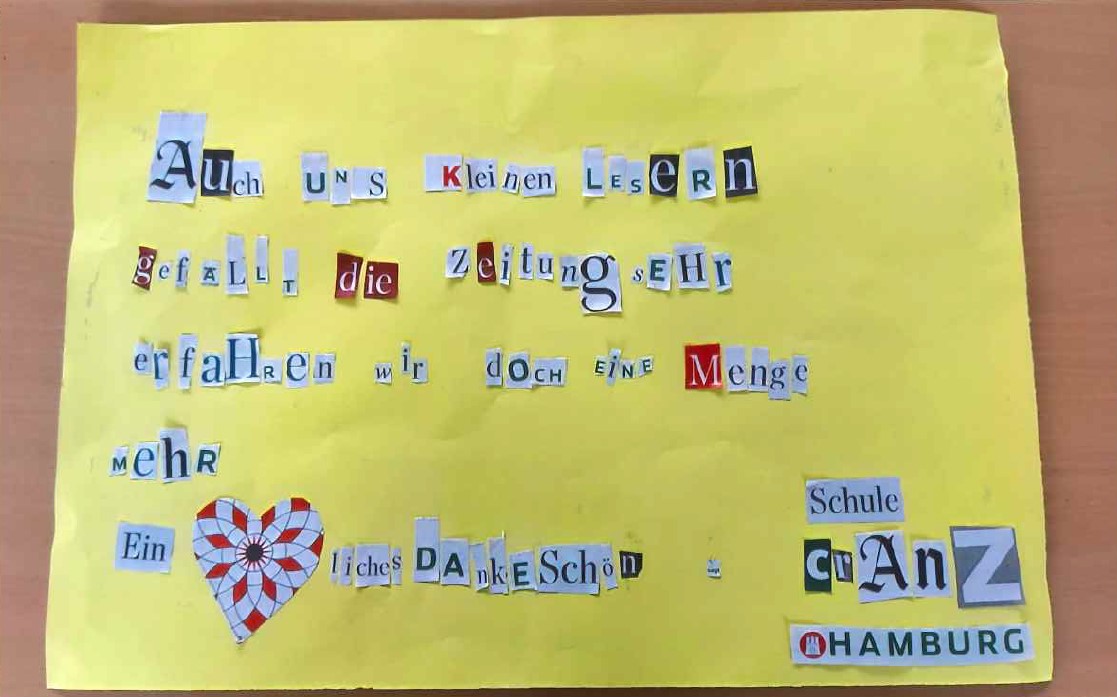 Auch UNS Kleinen LEsERn
gefÄLLT die Zeitung sEHr
erfaHRen wir dOCH EiNE Menge
MehR
Ein lichesDAnkESchön sagt
Schule
CrAnZ
HAMBURG